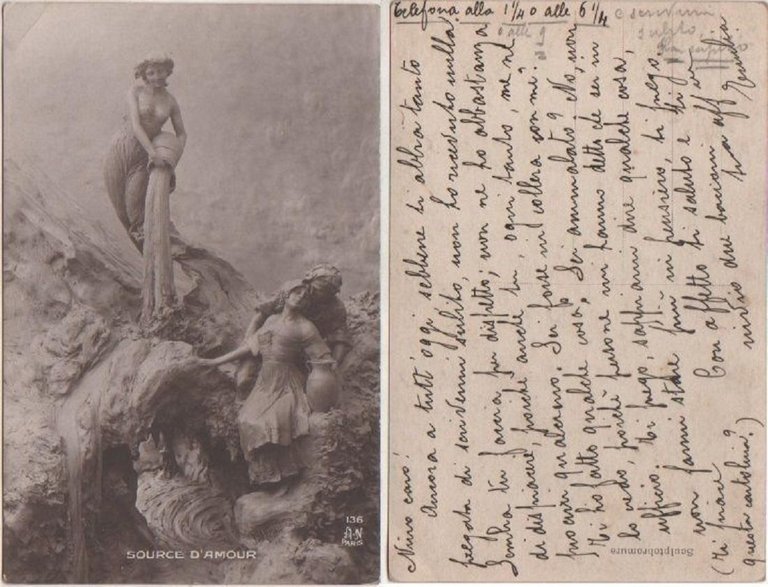 136
A·N
PARIS
SOURCE D'AMOUR
Telefona alla 1¼ o alle 6¼
o alle 9
e scrivimi
subito,
Nino caro!
Ancora a tutt'oggi sebbene ti abbia tanto
pregato di scrivermi subito, non ho ricevuto nulla.
Sembra tu faccia per dispetto; non ne ho abbastanza
di dispiacere, perché anche tu, ogni tanto, me ne
procuri qualcuno. Sei forse in collera con me?
Ti ho fatto qualche cosa? Sei ammalato? No, non
lo credo, poiché persone mi hanno detto che sei in
ufficio. Ti prego, sappimi dire qualche cosa,
non farmi stare più in pensiero, ti prego.
Con affetto ti saluto e ti
invio due bacioni tua aff
(Ti piace
questa cartolina?)
Sculptobromure